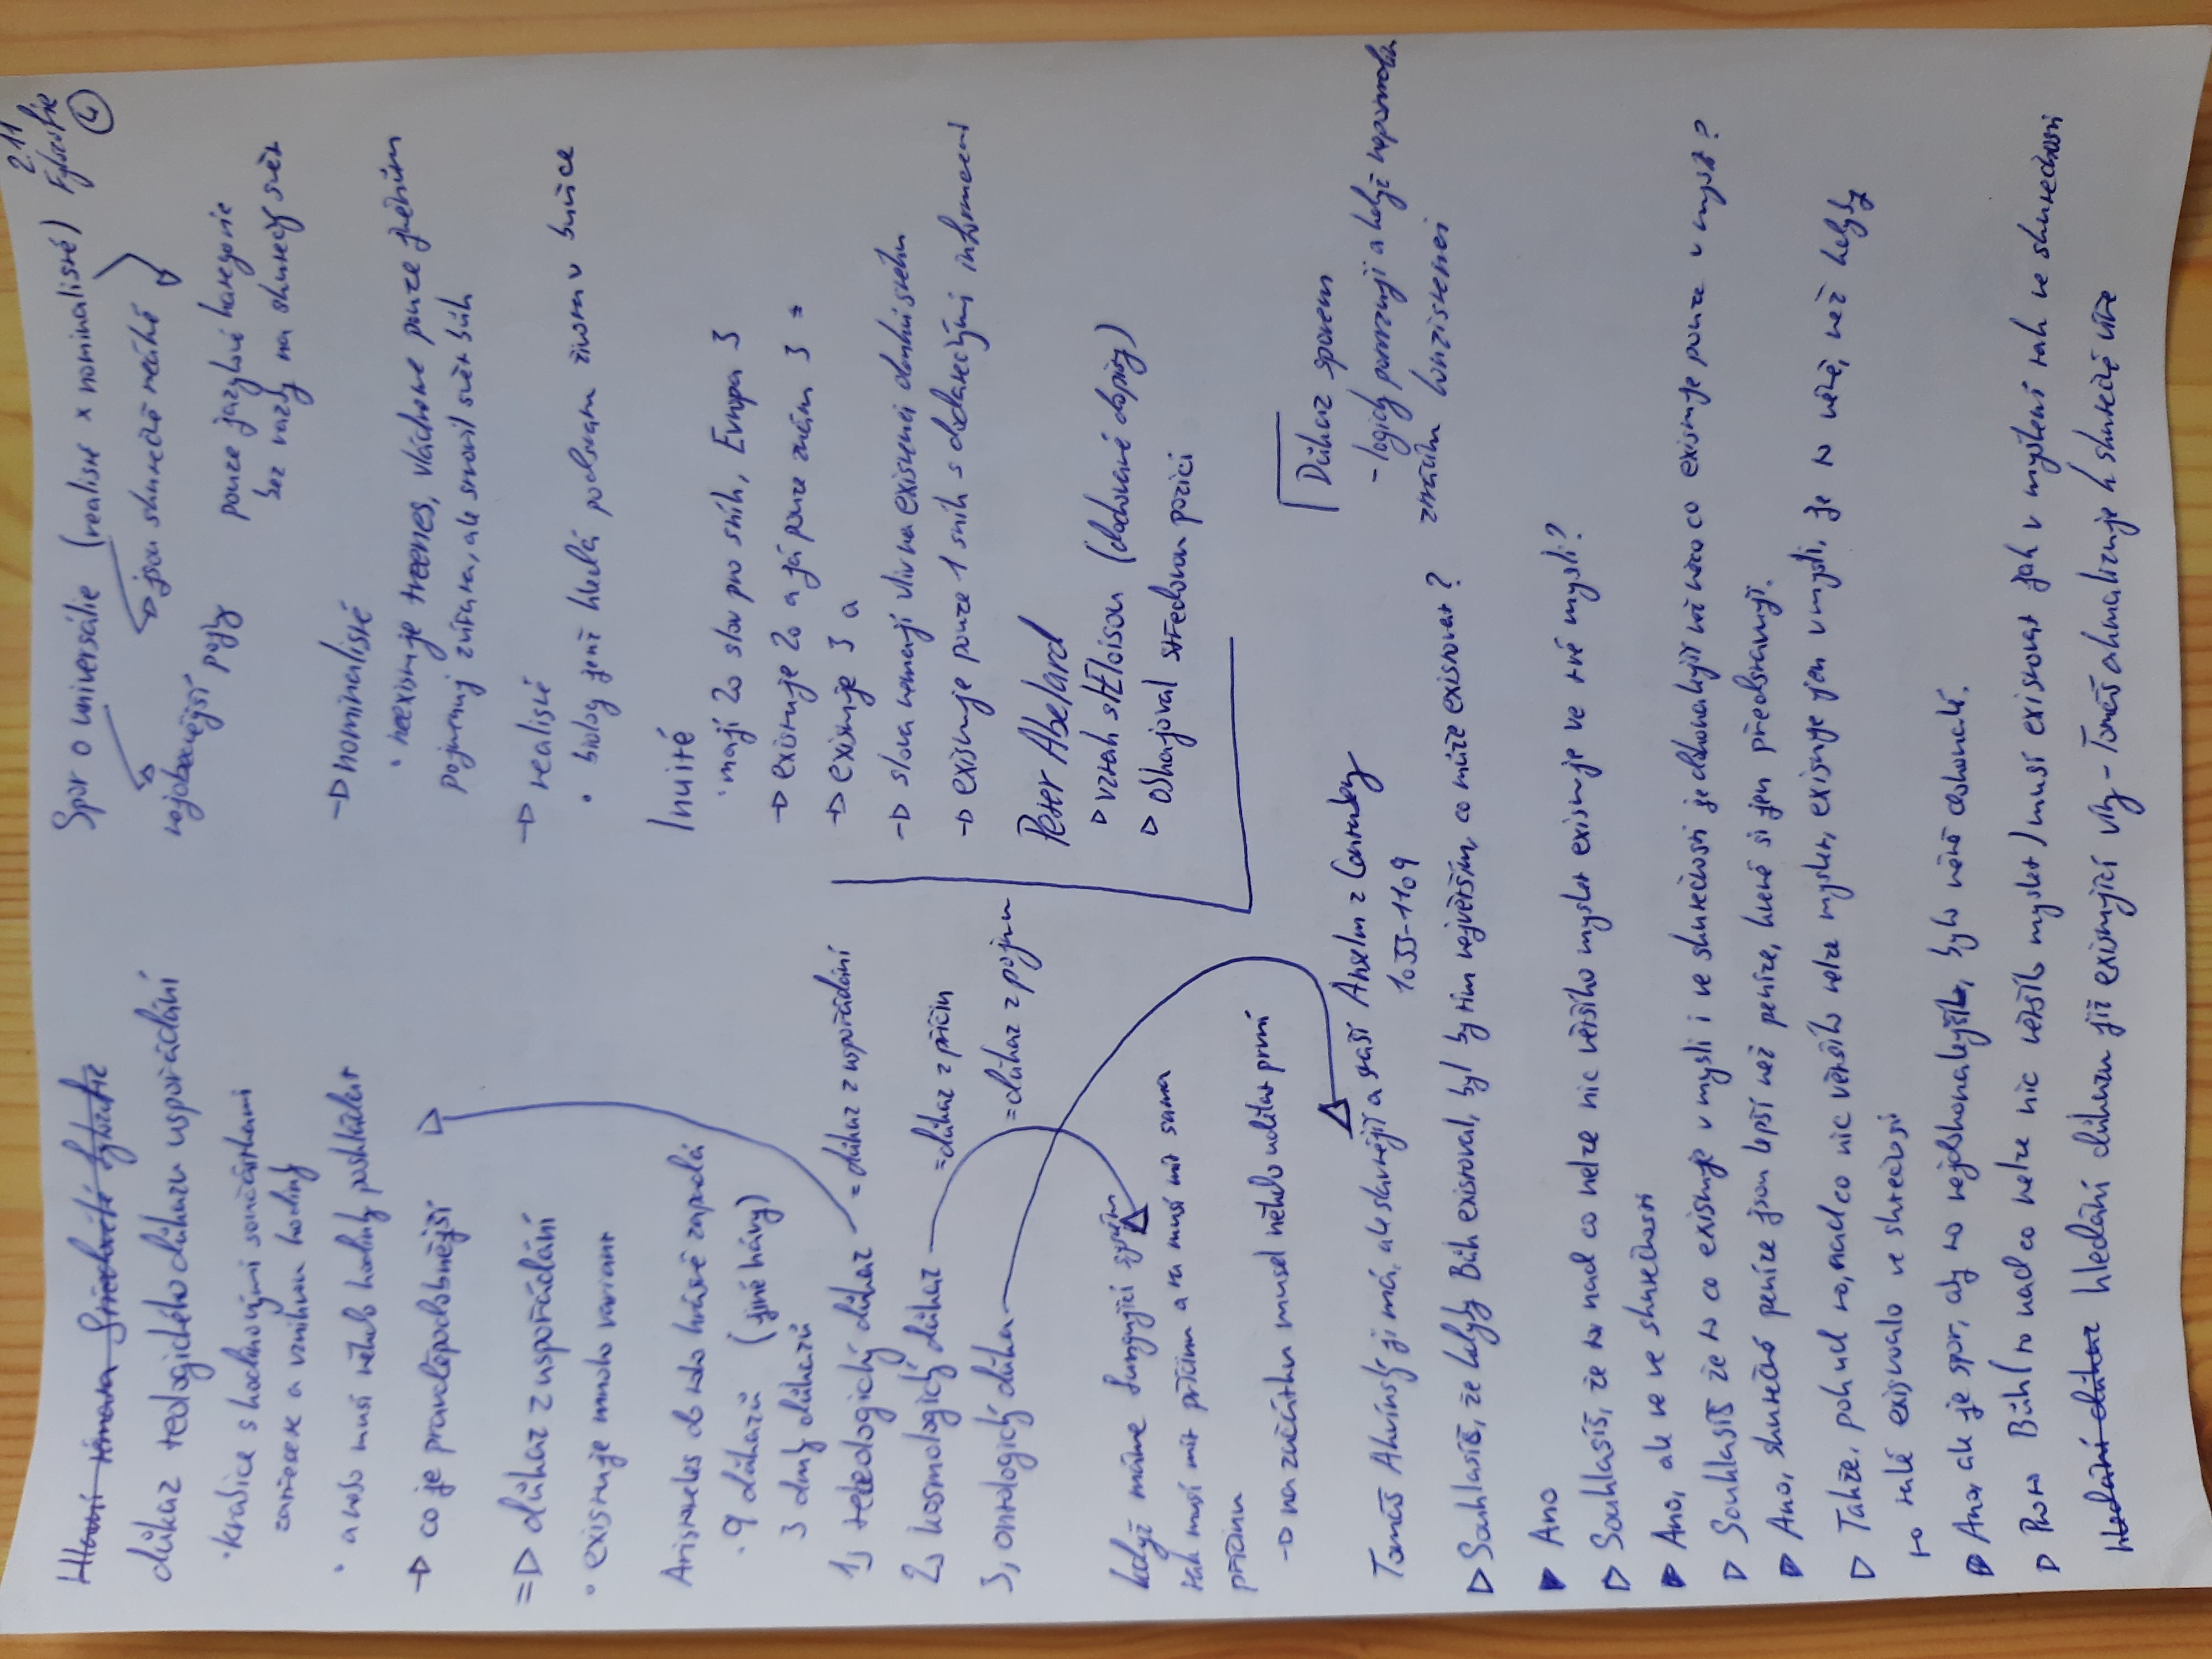 2.11
Fylosofie
4
Hlavní témata Středověké fylozofie
důkaz teologického důkazu uspořádání
· krabice s hodinovými součástkami
zatřesete a vzniknou hodiny
· anebo musí někdo hodiny poskládat
→ co je pravděpodobnější
⇒ důkaz z uspořádání
· existuje mnoho variant
Aristoteles od toho krásně
· 9 důkazů (jiné hávy)
3 druhy důkazů
1) teleologický důkaz = důkaz z uspořádání
2) kosmologický důkaz = důkaz z příčin
3) ontologický důkaz = důkaz z pojmu
když máme fungující systém
tak musí mít příčinu a ta musí mít sama
příčinu
→ na začátku musel někdo udělat první
Spor o universálie (realisté x nominalisté)
nejobecnější pojmy
jsou skutečně reálné
pouze jazykové kategorie
bez vazby na skutečný svět
→ nominalisté
· neexistuje treenes, vládneme pouze jměním
pojmenuj zvířata, ale stvořil svět bůh
→ realisté
· biolog jenž hledá podstatu života v buňce
Inuité
· mají 20 slov pro sníh, Evropa 3
→ existuje 20 a já pouze znám 3 =
→ existuje 3 a
→ slova nemají vliv na existenci daného sněhu
→ existuje pouze 1 sníh s dodatečnými informacemi
Peter Abelard
▷ vztah s Eloisou (dochované dopisy)
▷ obhajoval středovou pozici
Důkaz sporem
- logicky postupuji a když
ztrácím konzistenci
Tomáš Akvinský ji má, ale slavnější a starší Anselm z Canterbury
1033-1109
▷ Souhlasíš, že kdyby Bůh existoval, byl by tím největším, co může existovat?
▶ Ano
▷ Souhlasíš, že to nad co nelze nic většího myslet existuje ve tvé mysli?
▶ Ano, ale ne ve skutečnosti
▷ Souhlasíš že to co existuje v mysli i ve skutečnosti je dokonalejší než něco co existuje pouze v mysli?
▶ Ano, skutečné peníze jsou lepší než peníze, které si jen představuji.
▷ Takže, pokud to, nad co nic většího nelze myslet, existuje jen v mysli, je to méně, než kdyby
to také existovalo ve skutečnosti
▶ Ano, ale je spor, aby to nejdokonalejšího, bylo méně dokonalé.
▷ Proto Bůh (to nad co nelze nic většího myslet) musí existovat jak v myšlení tak ve skutečnosti
Hledání důkazu Hledání důkazu již existující víry - Tomáš aktualizuje k skutečné víře